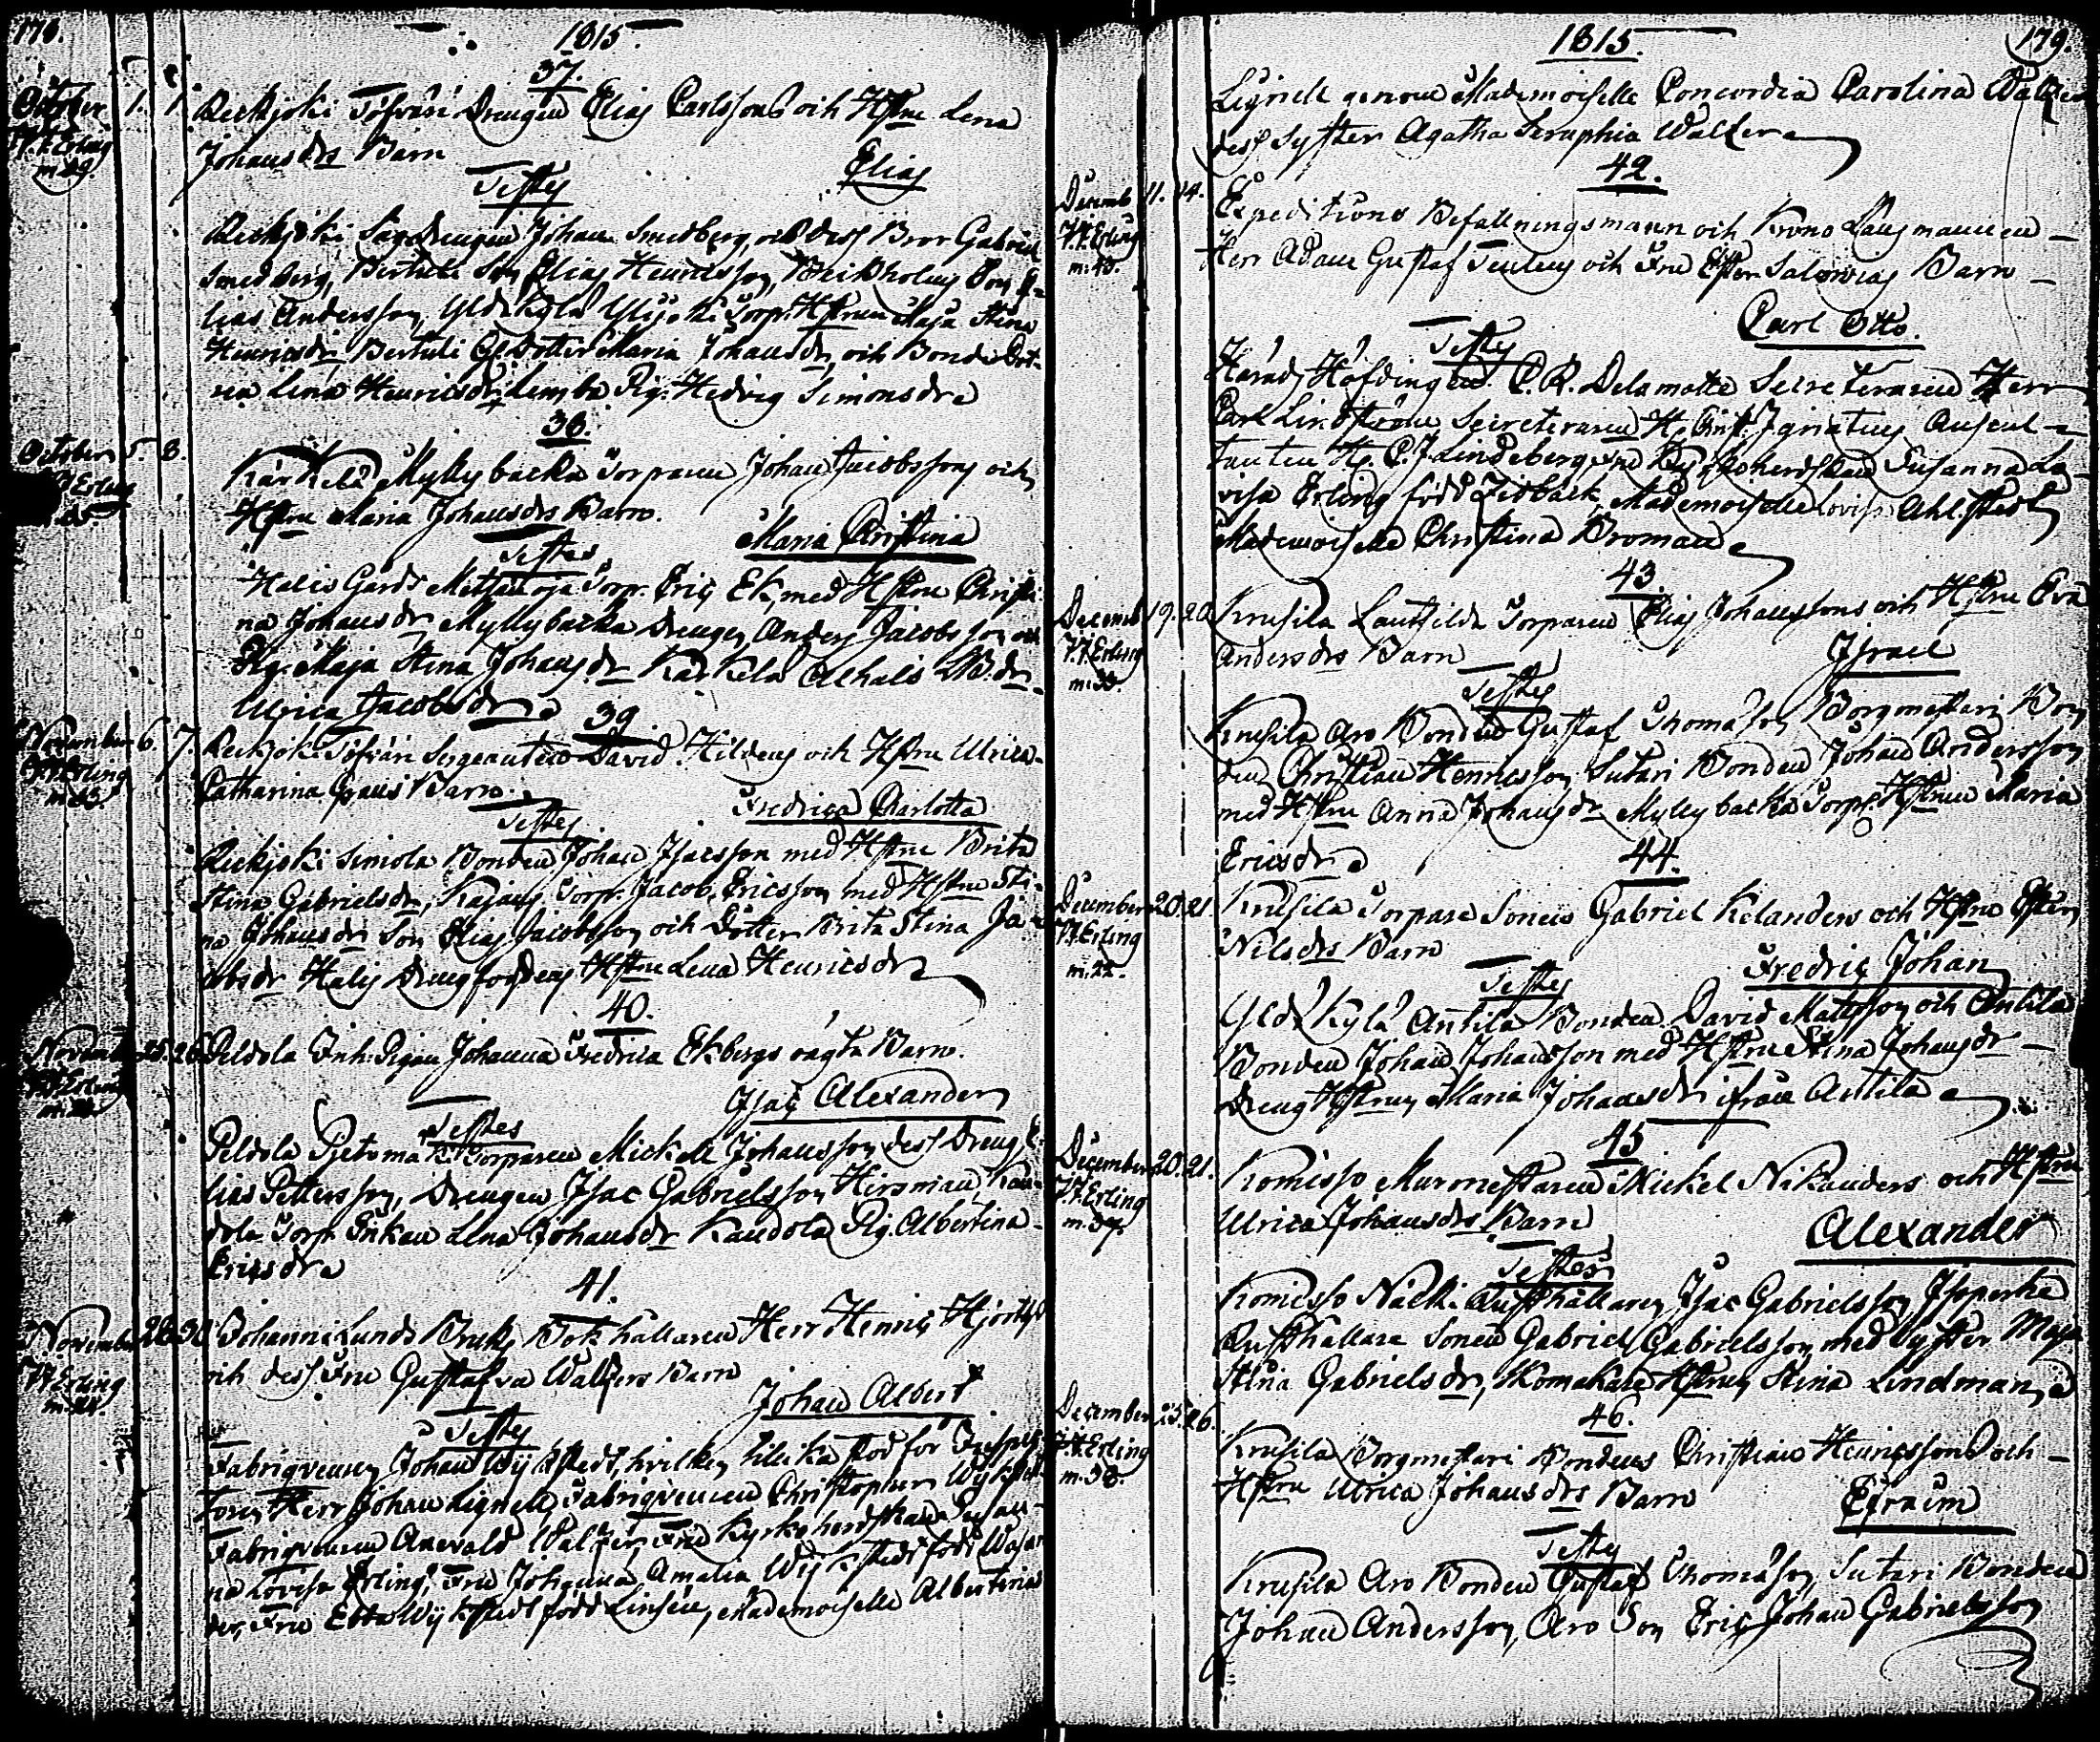 178.
1815.
37.
October 1. 1. Reckjoki Töfväri Drengen Elias Carlssons och Hstru Lena
J.F. Erling
m. 29.
Johansdrs Barn
Elias
Testes
Reckjoki Säg Drengen Johan Smedberg, och dess Bror Gabriel
Smedberg, Bertuli Son Elias Henricsson, Son E-
lias Andersson, Torp. Hstrun Maja Stina
Henricsdr, Bertuli Dotter Maria Johansdr, och Bonde
Lena Henricsdr, Lemba Pig. Hedvig Simonsdr
38.
October 5. 8. Kärkelä Myllybacka Torparen Johan Jacobssons och
Erling
Hstru Maria Johansdrs Barn.
Maria Christina
Testes
Halis Gårds Metsänoja Torp. Eric Ek, med Hstru Christi-
na Johansdr Myllybacka Drengen Anders Jacobsson och
Pig. Maja Stina Johansdr Kärkelä
Ulrica Jacobsdr
39.
November 6. 7. Reckjoki Töfväri Sergeanten David Hildens och Hstru Ulrica
J.F. Erling
m. 33.
Catharina Barn.
Fredrica Charlotta
Testes
Reckjoki Simola Bonden Johan Isacsson med Hstru Brita
Stina Gabrielsdr, Torp. Jacob Ericsson med Hstru Sti-
na Johansdr Son Elias Jacobsson och Dotter Brita Stina Ja-
cobsdr Halis Hstru Lena Henricsdr
40.
November 25. 26. Peldola Inh. Pigan Johanna Fredrica Ekbergs oägta Barn.
Isac Alexander
Testes
Peldola Torparen Mickell Johansson, dess Dreng E-
lias Pettersson, Drengen Isac Gabrielsson Hirsman, Kan-
dola Torp. Enkan Lena Johansdr Kandola Pig. Albertina
Ericsdr
41.
November 28. 30. Johannislunds Bruks Bokhållaren Herr Henric
J.F. Erling
m. 24.
och dess Fru Gustafva Walzers Barn
Johan Albert
Testes
Fabriqveuren Johan Wijkstedt, hvilken tillika stod för Inspek-
toren Herr Johan Lignell, Fabriqveuren Christopher Wykstedt
Fabriqveuren Walzer, Fru Kyrkoherdskan Susan-
na Lovisa Erling, Fru Johanna Amalia Wijkstedt född
Fru Ebba Wijkstedt född Linsén, Mademoiselle Albertina
1815.
179.
Lignell genom Mademoiselle Concordia Carolina Walzer
dess Syster Agatha Seraphia Walzer
42.
Decemb 11. 14. Expeditions Befallningsmann och Krono Länsmannen
J.F. Erling
m. 40.
Herr Adam Gustaf Tenlens och Fru Ester Barn
Carl Otto.
Testes
Härads Höfdingen C.R. Delamotte Secreteraren Herr
Carl Lindström, Secreteraren Hr Christ. Ignatius Auscul-
tanten Hr. C.J. Lindeberg Fru Kyrkoherdskan Susanna Lo-
visa Erling född Zidbäck, Mademoiselle Lovisa Ahlstedt
Mademoiselle Christina Broman
43.
Decemb 19. 20. Krusila Lautsilda Torparen Elias Johanssons och Hstru Eva
J.F. Erling
m. 33.
Andersdrs Barn
Israel
Testes
Krusila Aro Bonden Gustaf Thomasson Borgmestari Bon-
den Christian Henricsson Sutari Bonden Johan Andersson
med Hstru Anna Johansdr Myllybacka Torp. Hstrun Maria
Ericsdr
44.
December 20. 21. Krusila Torpare Sonens Gabriel Kelanders och Hstru Ester
J.F. Erling
m. 22.
Nilsdrs Barn
Fredric Johan
Testes
Kylä Antila Bonden David Mattsson och Antila
Bonden Johan Johansson med Hstru Stina Johansdr
Dreng Hstrun Maria Johansdr ifrån Antila
45
December 20. 21. Komisso Murmestaren Mickel Nikanders och Hstru
J.F. Erling
m. 37.
Ulrica Johansdrs Barn
Alexander
Testes
Komisso Näcki Rusthållaren Isac Gabrielsson, Isoperhe
Rusthållare Sonen Gabriel Gabrielsson med Syster Maja
Stina Gabrielsdr, Skomakare Hstrun Stina Lindman
46.
December 25. 26. Krusila Borgmestari Bondens Christian Henricssons och
J.F. Erling
m. 38.
Hstru Ulrica Johansdrs Barn
Efraim
Testes
Krusila Aro Bonden Gustaf Thomasson, Sutari Bonden
Johan Andersson, Aro Son Eric Johan Gabrielsson